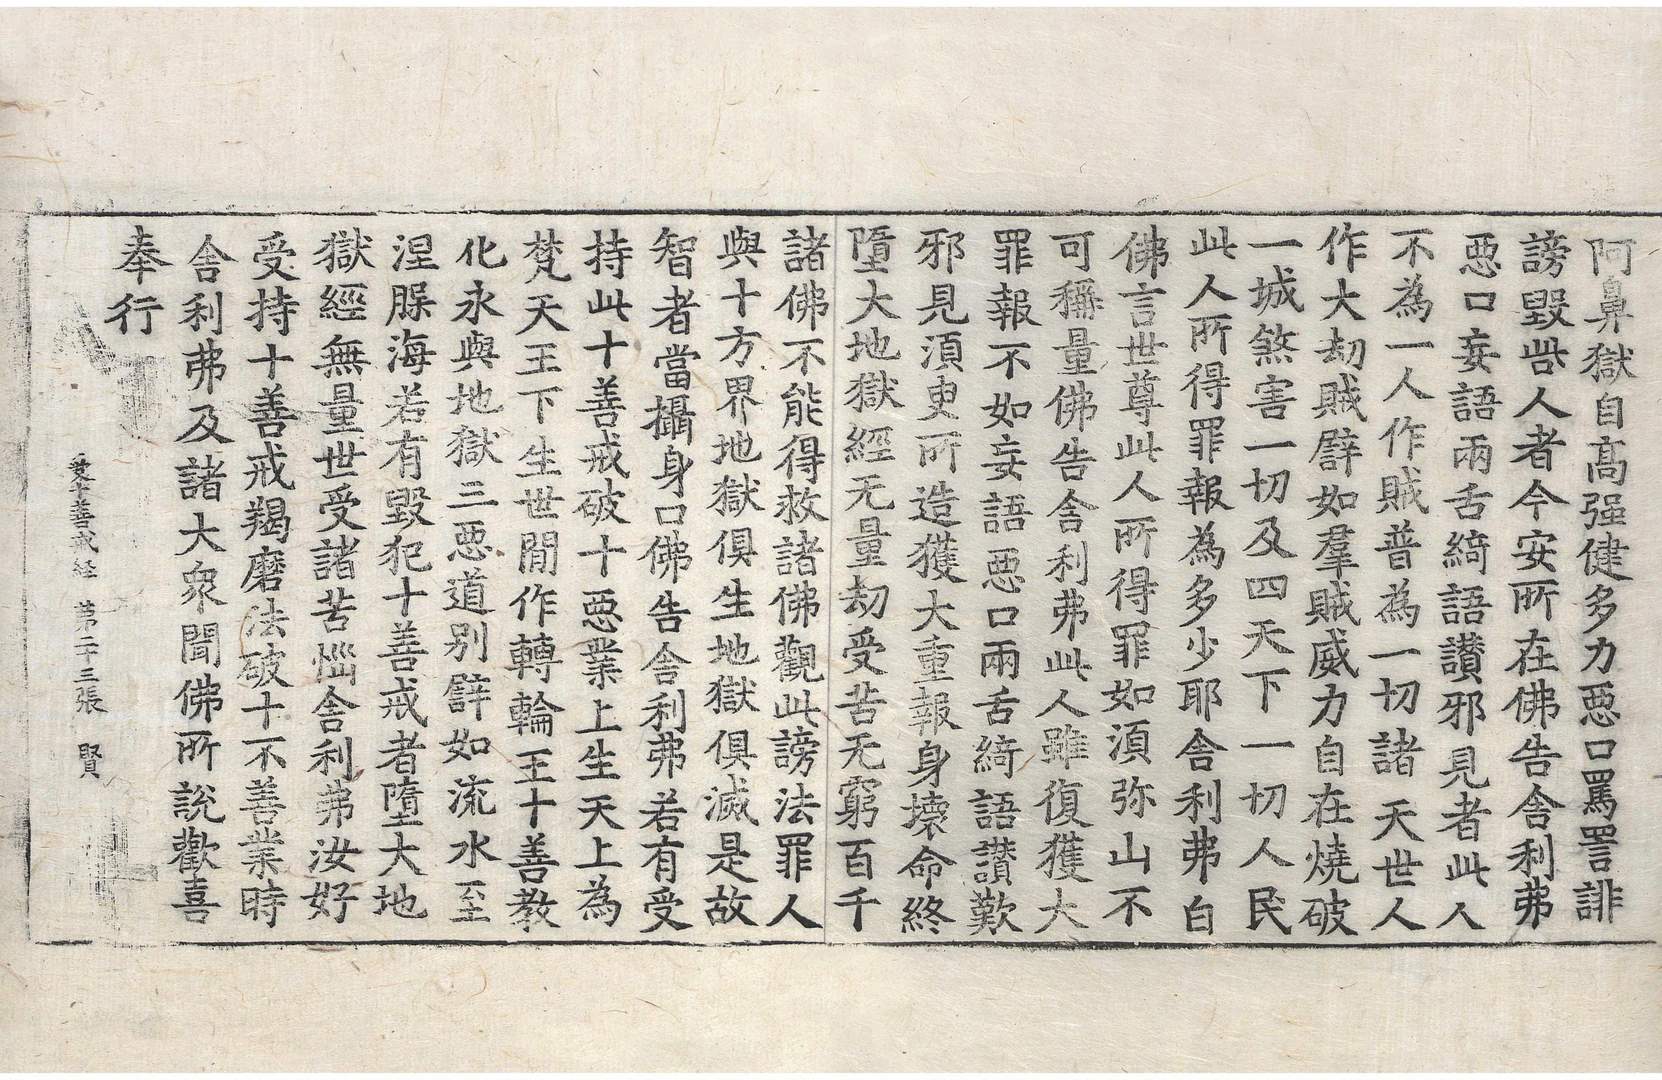 阿鼻獄自高强健多力惡口罵詈誹
謗毀呰人者今安所在佛告舍利弗
惡口妄語兩舌綺語讃邪見者此人
不為一人作賊普為一切諸天世人
作大劫賊譬如羣賊威力自在燒破
一城煞害一切及四天下一切人民
此人所得罪報為多少耶舍利弗白
佛言世尊此人所得罪如須弥山不
可稱量佛告舍利弗此人雖復獲大
罪報不如妄語惡口兩舌綺語讃歎
邪見須臾所造獲大重報身壞命終
墮大地獄經无量劫受苦无窮百千
諸佛不能得救諸佛觀此謗法罪人
與十方界地獄俱生地獄俱滅是故
智者當攝身口佛告舍利弗若有受
持此十善戒破十惡業上生天上為
梵天王下生世間作轉輪王十善教
化永與地獄三惡道別譬如流水至
涅槃海若有毀犯十善戒者墮大地
獄經無量世受諸苦惱舍利弗汝好
受持十善戒羯磨法破十不善業時
舍利弗及諸大衆聞佛所說歡喜
奉行
受十善戒経 第二十三張 賢